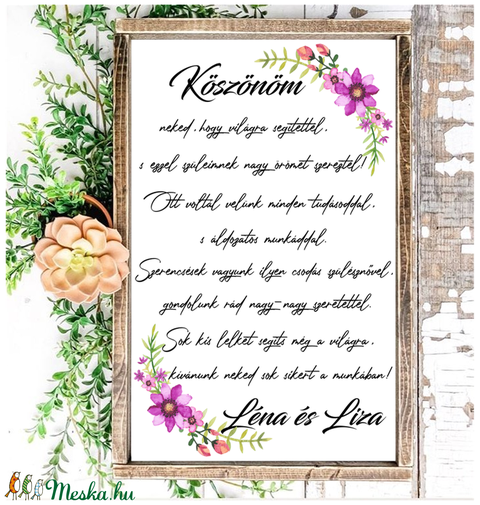 Köszönöm
neked, hogy világra segítettél,
s ezzel szüleinnek nagy örömet szereztél!
Ott voltál velünk minden tudásoddal,
s áldozatos munkáddal.
Szerencsések vagyunk ilyen csodás szülésznővel,
gondolunk rád nagy-nagy szeretettel.
Sok kis lelket segíts még a világra,
kívánunk neked sok sikert a munkában!
Léna és Liza
Meska.hu